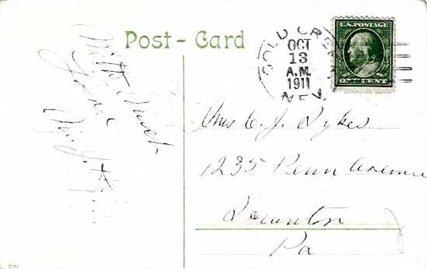 Post-Card
GOLD CREEK
OCT
13
A.M.
1911
NEV.
U.S. POSTAGE
ONE CENT
Mrs C. J. Dykes
1235 Penn Avenue
Scranton
Pa
With Sweet
Love